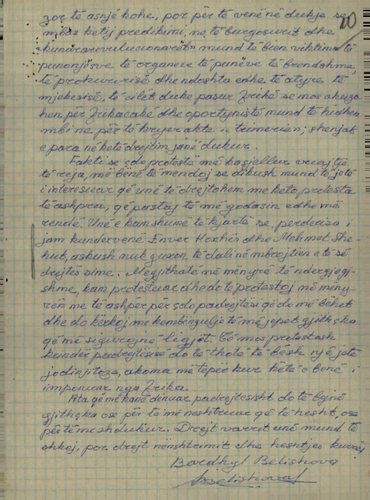 20
zor të asnjë kohe, por për të venë në dukje se
mbas ketij predikimi, ne, të burgosurit dhe
kundërrevolucionarët mund të bien viktima të
punonjësve të organeve të punëve të brendshme,
të prokurorisë dhe ndoshta edhe të atyre të
mjekësisë, të cilët duke pasur frikë se mos akuzo
hen për frikacakë dhe oportunistë mund të hidhen
mbi ne, për të kryer akte shenjat
e para në këtë drejtim janë dukur.
Fakti se çdo protestë më kthehet veçej të
të reja, më bënë të mendoj se dikush mund të jetë
i interesuar që unë të drejtohem me këto protesta
të ashpra, që pastaj të më godasin edhe më
rëndë. Unë e kam shumë të kjartë se, përderisa
jam kundërvënë Enver Hoxhës dhe Mehmet She-
hut, askush nuk guxon të dali në mbrojtjen e të
drejtës sime. Megjithatë në mënyrë të ndërgjegj-
shme, kam protestuar dhe të protestoj në mëny-
rën me të ashpër për çdo padrejtësi që do më bëhet
dhe do kërkoj me këmbëngulje të më jepet gjithçka
që më siguron ligji. Të mos protestosh
kundër padrejtësisë do të thotë të bësh një jetë
poshtë, akoma më tepër kur këtë e bënë i
imponuar nga frika.
Ata që më kanë dënuar padrejtësisht do të bëjnë
gjithçka ose për të më nështruar që të hesht, ose
për të më shdukur. Drejt varrit unë mund të
shkoj, por drejt nënshtrimit dhe heshtjes kurrë.
Bardhyl Belishova